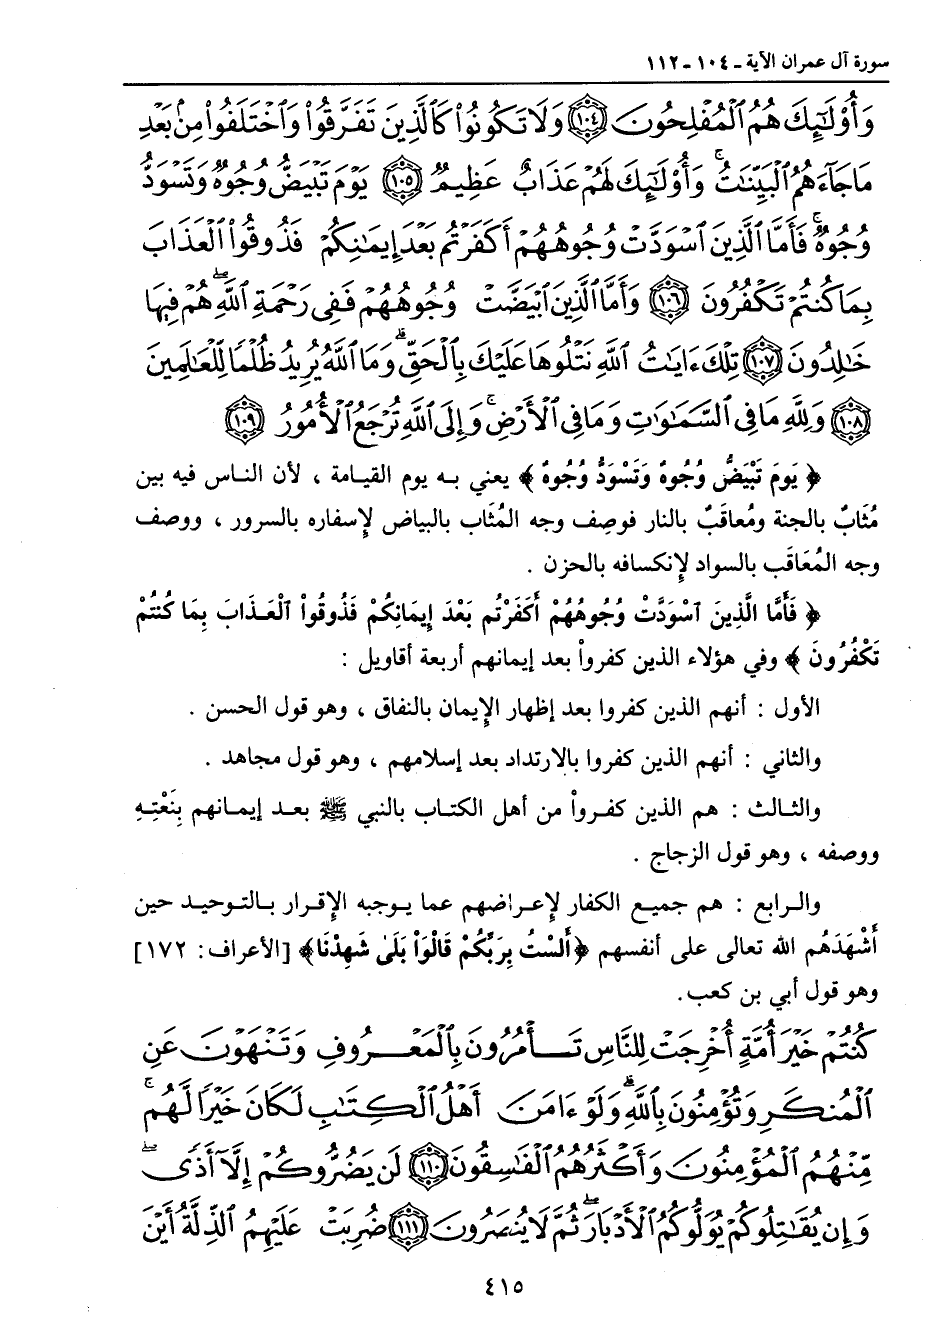 سورة آل عمران الآية ـ ١٠٤ ـ ١١٢
وَأُوْلَٰٓئِكَ هُمُ ٱلْمُفْلِحُونَ ١٠٤ وَلَا تَكُونُوا۟ كَٱلَّذِينَ تَفَرَّقُوا۟ وَٱخْتَلَفُوا۟ مِنۢ بَعْدِ
مَا جَآءَهُمُ ٱلْبَيِّنَٰتُ ۚ وَأُوْلَٰٓئِكَ لَهُمْ عَذَابٌ عَظِيمٌ ١٠٥ يَوْمَ تَبْيَضُّ وُجُوهٌ وَتَسْوَدُّ
وُجُوهٌ ۚ فَأَمَّا ٱلَّذِينَ ٱسْوَدَّتْ وُجُوهُهُمْ أَكَفَرْتُم بَعْدَ إِيمَٰنِكُمْ فَذُوقُوا۟ ٱلْعَذَابَ
بِمَا كُنتُمْ تَكْفُرُونَ ١٠٦ وَأَمَّا ٱلَّذِينَ ٱبْيَضَّتْ وُجُوهُهُمْ فَفِى رَحْمَةِ ٱللَّهِ ۖ هُمْ فِيهَا
خَٰلِدُونَ ١٠٧ تِلْكَ ءَايَٰتُ ٱللَّهِ نَتْلُوهَا عَلَيْكَ بِٱلْحَقِّ ۗ وَمَا ٱللَّهُ يُرِيدُ ظُلْمًا لِّلْعَٰلَمِينَ
١٠٨ وَلِلَّهِ مَا فِى ٱلسَّمَٰوَٰتِ وَمَا فِى ٱلْأَرْضِ ۚ وَإِلَى ٱللَّهِ تُرْجَعُ ٱلْأُمُورُ ١٠٩
﴿ يَومَ تَبْيَضُّ وُجُوهٌ وَتَسْوَدُّ وُجُوهٌ ﴾ يعني به يوم القيامة ، لأن الناس فيه بين
مُثَابٌ بالجنة ومُعاقَبٌ بالنار فوصِف وجه المُثَاب بالبياض لإسفاره بالسرور ، ووصف
وجه المُعَاقَب بالسواد لإنكسافه بالحزن .
﴿ فَأَمَّا الَّذِينَ ٱسْوَدَّتْ وُجُوهُهُمْ أَكَفَرْتُم بَعْدَ إِيمَانِكُمْ فَذُوقُواْ ٱلْعَذَابَ بِمَا كُنتُمْ
تَكْفُرُونَ ﴾ وفي هؤلاء الذين كفرواْ بعد إيمانهم أربعة أقاويل :
الأول : أنهم الذين كفروا بعد إظهار الإيمان بالنفاق ، وهو قول الحسن .
والثاني : أنهم الذين كفروا بالارتداد بعد إسلامهم ، وهو قول مجاهد .
والثالث : هم الذين كفرواْ من أهل الكتاب بالنبي ﷺ بعد إيمانهم بِنَعْتِهِ
ووصفه ، وهو قول الزجاج .
والرابع : هم جميع الكفار لإعراضهم عما يوجبه الإقرار بالتوحيد حين
أَشْهَدَهُم الله تعالى على أنفسهم ﴿أَلَسْتُ بِرَبِّكُمْ قَالُوَاْ بَلَىٰ شَهِدْنَا﴾ [الأعراف: ١٧٢]
وهو قول أبي بن كعب.
كُنتُمْ خَيْرَ أُمَّةٍ أُخْرِجَتْ لِلنَّاسِ تَأْمُرُونَ بِٱلْمَعْرُوفِ وَتَنْهَوْنَ عَنِ
ٱلْمُنكَرِ وَتُؤْمِنُونَ بِٱللَّهِ ۗ وَلَوْ ءَامَنَ أَهْلُ ٱلْكِتَٰبِ لَكَانَ خَيْرًا لَّهُم ۚ
مِّنْهُمُ ٱلْمُؤْمِنُونَ وَأَكْثَرُهُمُ ٱلْفَٰسِقُونَ ١١٠ لَن يَضُرُّوكُمْ إِلَّآ أَذًى ۖ
وَإِن يُقَٰتِلُوكُمْ يُوَلُّوكُمُ ٱلْأَدْبَارَ ۖ ثُمَّ لَا يُنصَرُونَ ١١١ ضُرِبَتْ عَلَيْهِمُ ٱلذِّلَّةُ أَيْنَ
٤١٥